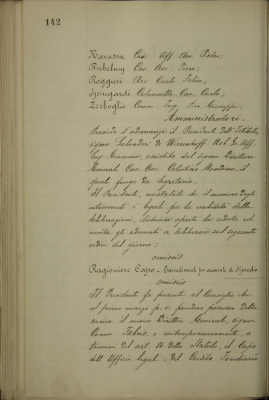 142
Navassa Cav. Uff. Avv. Pietro;
Rubelmy Cav. Avv.
Roggieri Avv. Carlo Felice;
Spingardi Colonnello Cav. Carlo;
Zerboglio Comm. Ing. Giuseppe;
Amministratori.
Presiede l'adunanza il Presidente dell'Istituto,
signor Salvadori di Wiesenhoff Nob. Gr. Uff.
Ing. Giovanni, assistito dal signor Direttore
Generale Cav. Avv. Celestino Mondino, il
quale funge da Segretario.
Il Presidente, constatato che il numero degli
intervenuti è legale per la validità delle
deliberazioni, dichiara aperta la seduta ed
invita gli adunati a deliberare sul seguente
ordine del giorno:
omissis
Ragioniere Capo - per aumento di stipendio
omissis
Il Presidente fa presente al Consiglio che
al primo marzo p. v. prenderà possesso della
carica il nuovo Direttore Generale, signor
Comm. e contemporaneamente, a
termini dell'art. dello Statuto, il Capo
dell'Ufficio legale e del Credito Fondiario